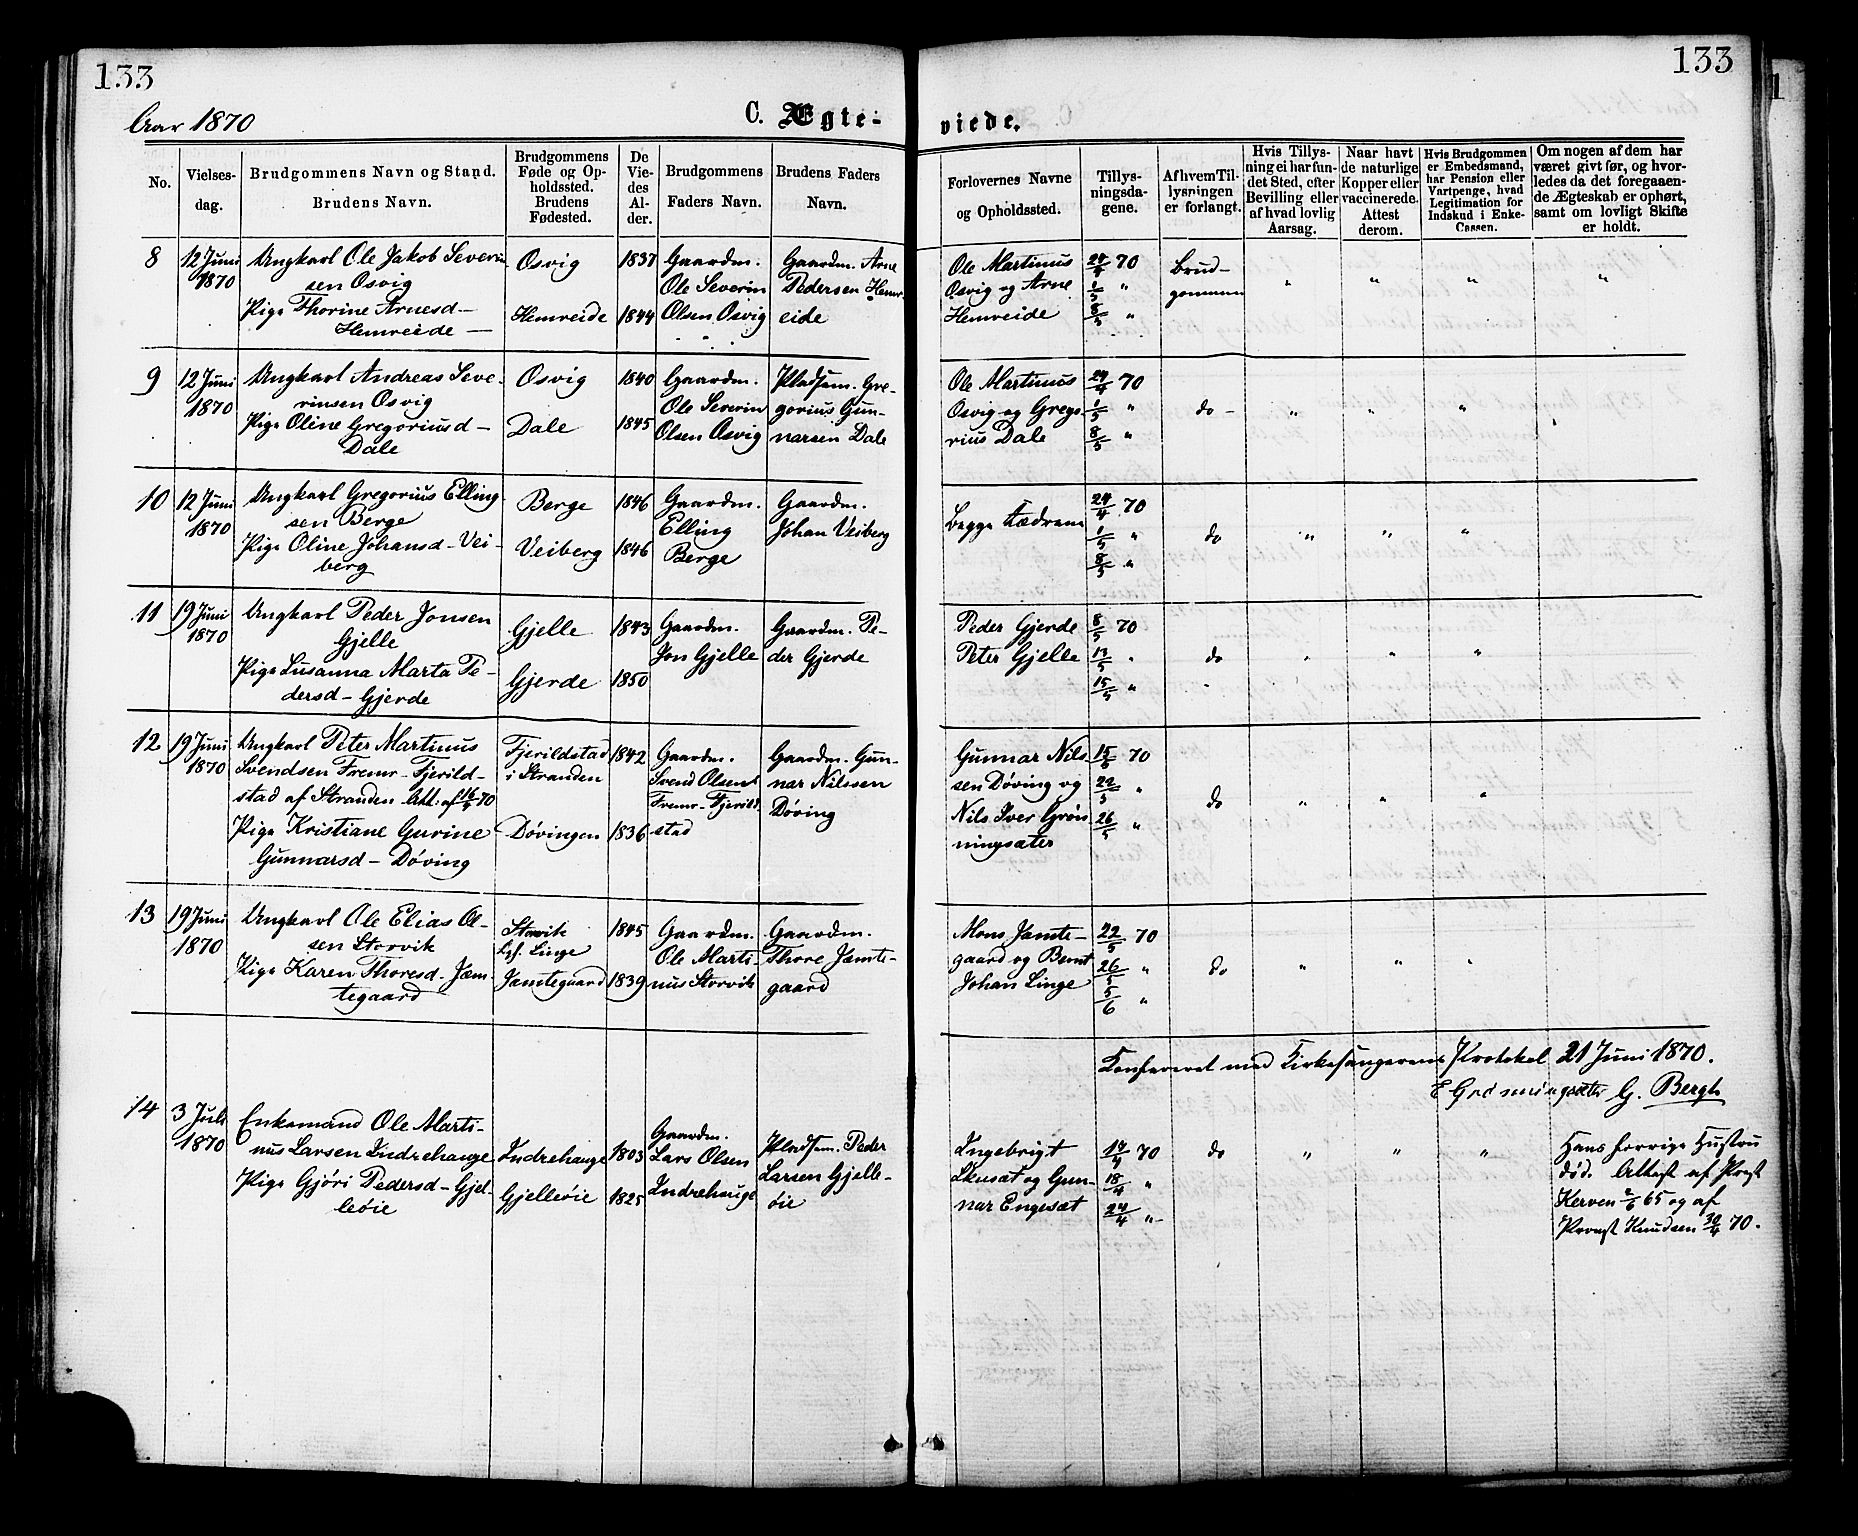 133
133
Aar 1870
C. Ægte-
viede.
No.
Vielses-
dag.
Brudgommens Navn og Stand.
Brudens Navn.
Brudgommens
Føde og Op-
holdssted.
Brudens
Fødested.
De
Vie-
des
Al-
der.
Brudgommens
Faders Navn.
Brudens Faders
Navn.
Forlovernes Navne
og Opholdssted.
Tillys-
ningsda-
gene.
Af hvem Til-
lysningen
er forlangt.
Hvis Tillys-
ning ei har fun-
det Sted, efter
Bevilling eller
af hvad lovlig
Aarsag.
Naar havt
de naturlige
Kopper eller
vaccinerede.
Attest
derom.
Hvis Brudgommen
er Embedsmand,
har Pension eller
Vartpenge, hvad
Legitimation for
Indskud i Enke-
Cassen.
Om nogen af dem har
været givt før, og hvor-
ledes da det foregaaen-
de Ægteskab er ophørt,
samt om lovligt Skifte
er holdt.
8
12 Juni
1870
Ungkarl Ole Jakob Severin
sen Osvig
Pige Thorine Arnesd-
Hemreide -
Osvig
Hemreide
1837
1844
Gaardm.
Ole Severin
Olsen Osvig
Gaardm. Arne
Pedersen Hemr-
eide
Ole Martinus
Osvig og Arne
Hemreide
24/4 70
1/5 "
8/5 "
Brud-
gommen
" " " "
9
12 Juni
1870
Ungkarl Andreas Seve-
rinsen Osvig
Pige Oline Gregoriusd-
Dale
Osvig
Dale
1840
1845
Gaardm.
Ole Severin
Olsen Osvig
Pladsm. Gre-
gorius Gun-
narsen Dale
Ole Martinus
Osvig og Grego-
rius Dale
24/4 70
1/5 "
8/5 "
do -
" " "
10
12 Juni
1870
Ungkarl Gregorius Elling-
sen Berge
Pige Oline Johansd- Vei-
berg
Berge
Veiberg
1846
1846
Gaardm.
Elling
Berge
Gaardm.
Johan Veiberg
Begge Fædrene
24/4 70
1/5 "
8/5 "
do
" " "
11
19 Juni
1870
Ungkarl Peder Jonsen
Gjelle
Pige Susanna Marta Pe-
dersd- Gjerde
Gjelle
Gjerde
1843
1850
Gaardm.
Jon Gjelle
Gaardm. Pe-
der Gjerde
Peder Gjerde
Peter Gjelle
8/5 70
13/5 "
15/5 "
do
" " "
12
19 Juni
1870
Ungkarl Peter Martinus
Svendsen Fremr- Fjerild-
stad af Stranden Att: af 16/4 70
Pige Kristiane Gurine
Gunnarsd- Døving
Fjerildstad
i Stranden
Døvingen
1842
1836
Gaardm.
Svend Olsen
Fremr- Fjerild-
stad
Gaardm. Gun-
nar Nilssen
Døving
Gunnar Nils-
sen Døving og
Nils Iver Grøn-
ningsæter
15/5 70
22/5 "
26/5 "
do
" " "
13
19 Juni
1870
Ungkarl Ole Elias Ol-
sen Storvik
Pige Karen Thoresd- Jæm-
tegaard
Storvik
Lgf. Linge
Jæmtegaard
1845
1839
Gaardm.
Ole Marti-
nus Storvik
Gaardm.
Thore Jæmte-
gaard
Mons Jæmte-
gaard og Bernt
Johan Linge
22/5 70
26/5 "
5/6 "
do
" " "
Konfereret med Kirkesangerens Protokol 21 Juni 1870.
E Grønningsæter G. Bergh
14
3 Juli
1870
Enkemand Ole Marti-
nus Larsen Indrehauge
Pige Gjøri Pedersd- Gjel-
leøie
Indrehauge
Gjelleøie
1803
1825
Gaardm.
Lars Olsen
Indrehauge
Pladsm. Peder
Larsen Gjelle-
øie
Ingebrigt
Skusæt og Gun-
nar Engesæt
17/4 70
18/4 "
24/4 "
do
" " "
Hans forrige Hustru
død. Attest af Prest
Kerven 2/6 65 og af
Provst Knudsen 30/4 70.